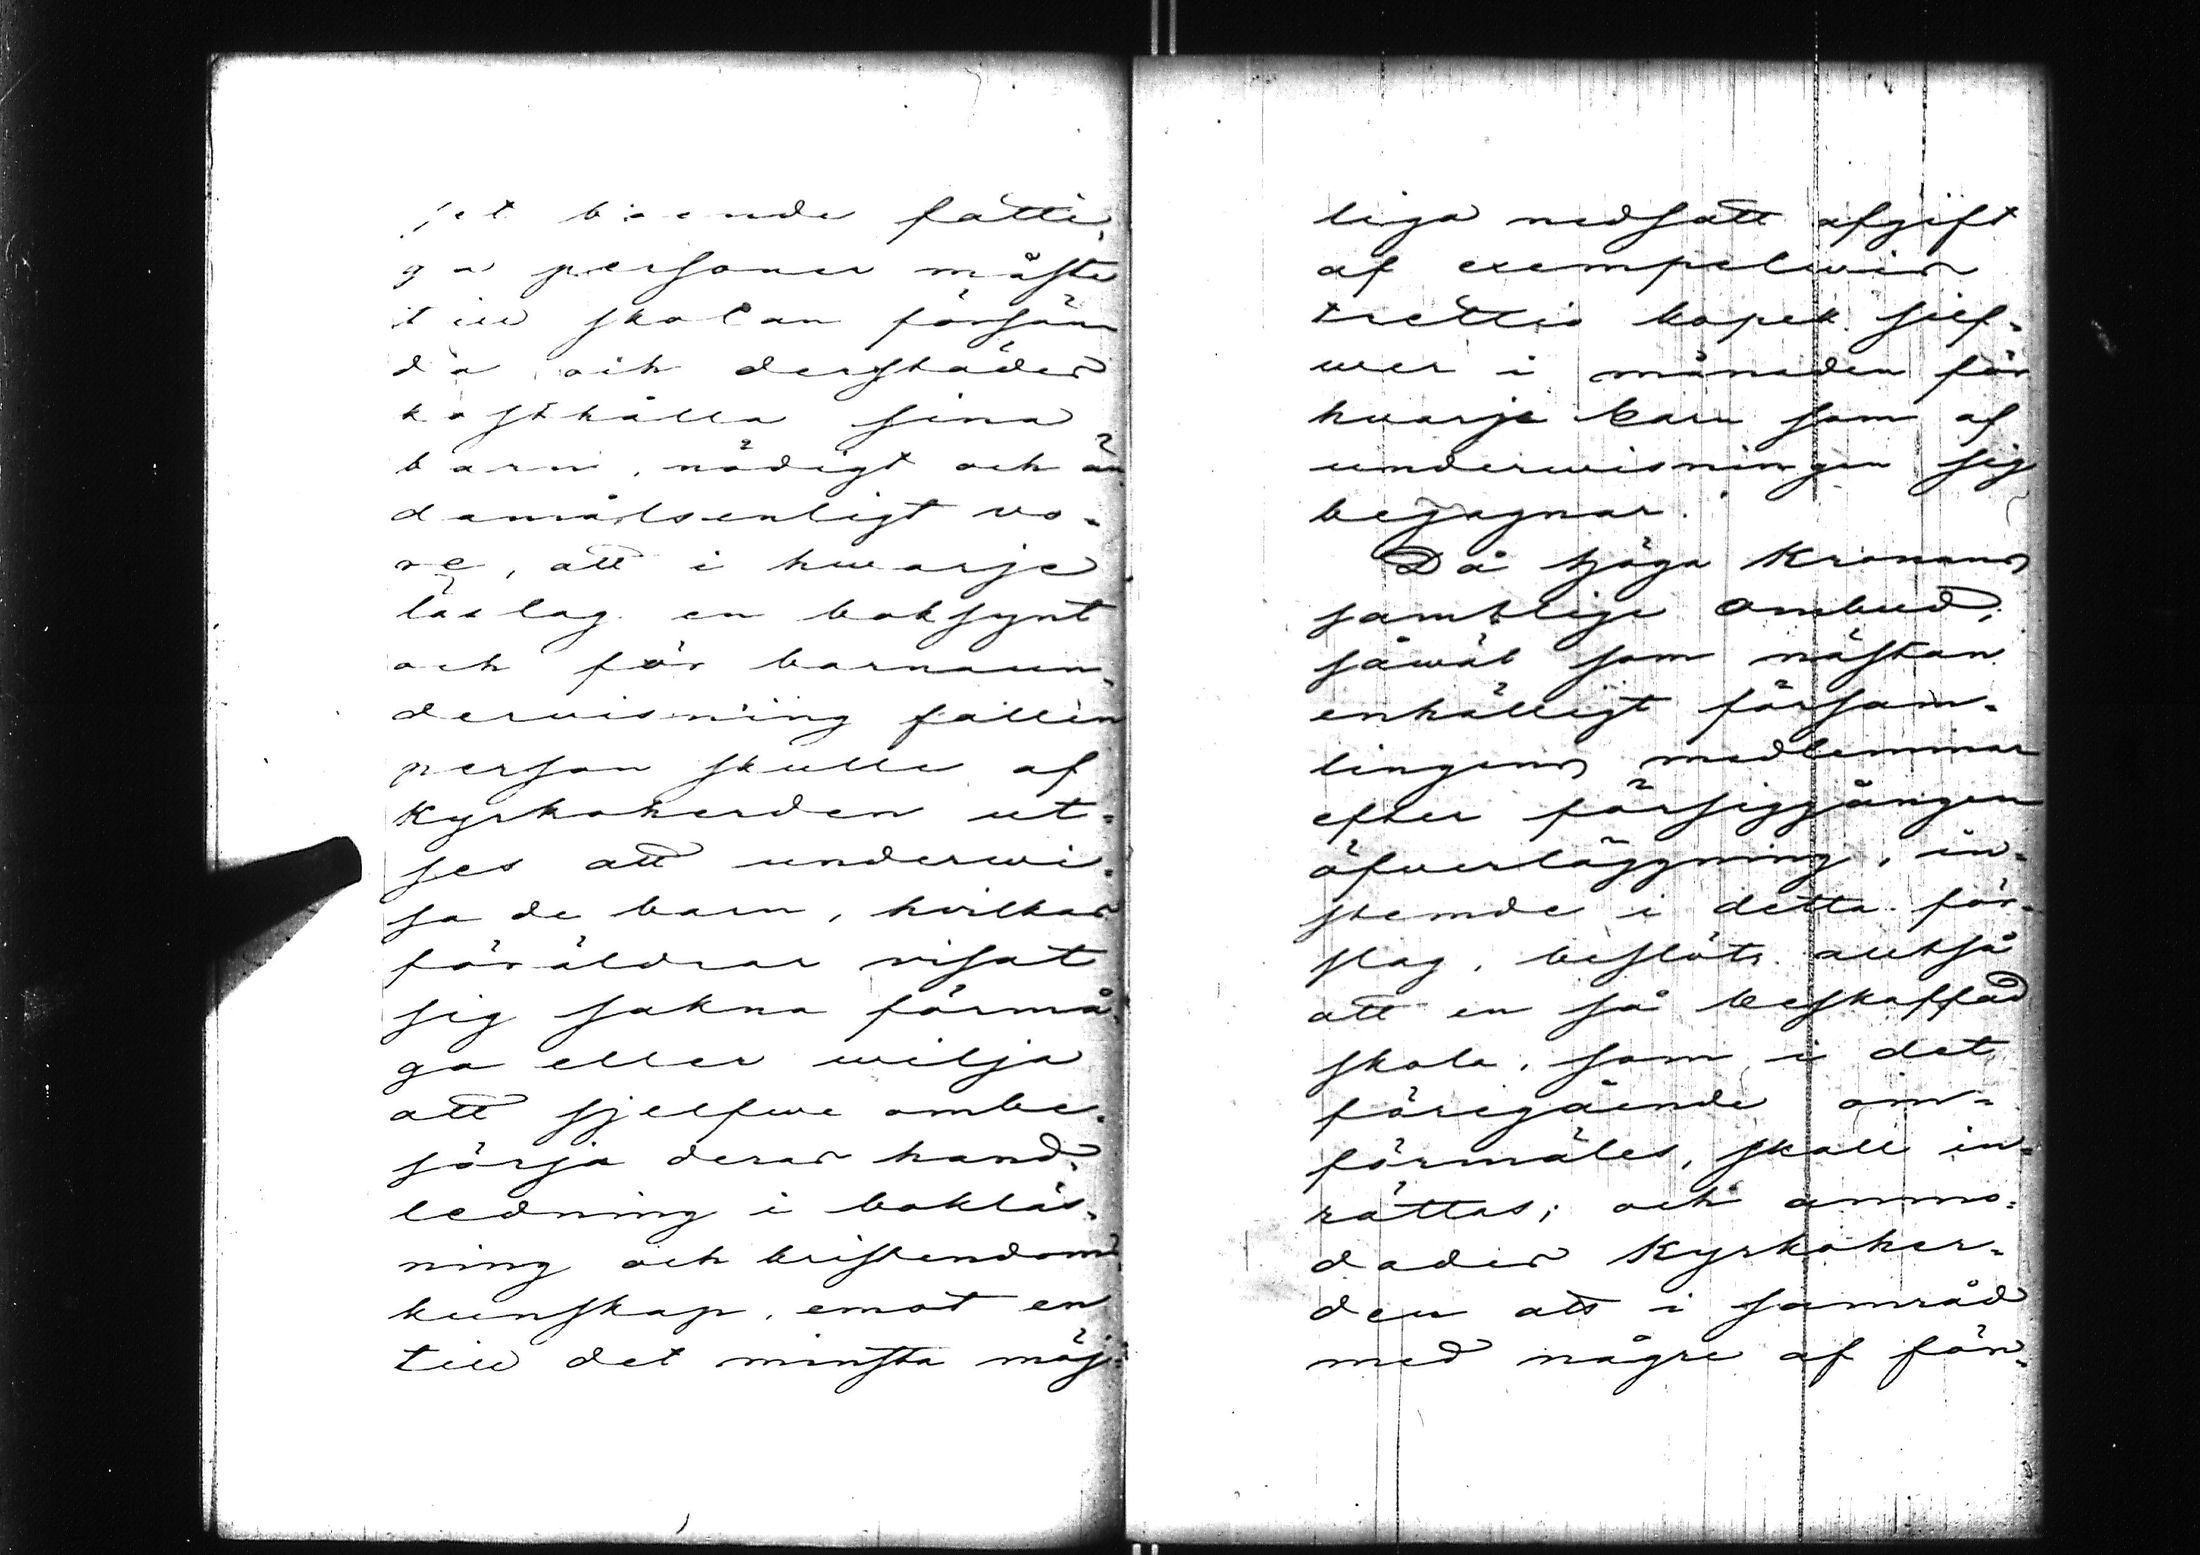 boende fatti-
ga personer måste
till skolan försän-
da och derstädes
kosthålla sina
barn, nödigt och än-
damålsenligt vo-
re, att i hwarje
läslag en boksynt
och för barnaun-
dervisning fallen
person skulle af
Kyrkoherden ut-
ses att underwi-
sa de barn, hvilkas
föräldrar visat
sig sakna förmå-
ga eller wilja
att sjelfwe ombe-
sörja deras hand-
ledning i bokläs-
ning och kristendoms
kunskap, emot en
till det minsta möj-
liga nedsatt afgift
af exempelwis
trettio kopek silf-
wer i månaden för
hvarje barn som af
underwisningen sig
begagnar.
Då höga Kronans
samtlige ombud,
såwäl som nästan
enhälligt försam-
lingens medlemmar
efter försiggången
öfverläggning, in-
stemde i detta för-
slag, beslöts alltså
att en så beskaffad
skola, som i det
föregående om-
förmäles, skall in-
rättas; och anmo-
dades Kyrkoher-
den att i samråd
med någre af för-